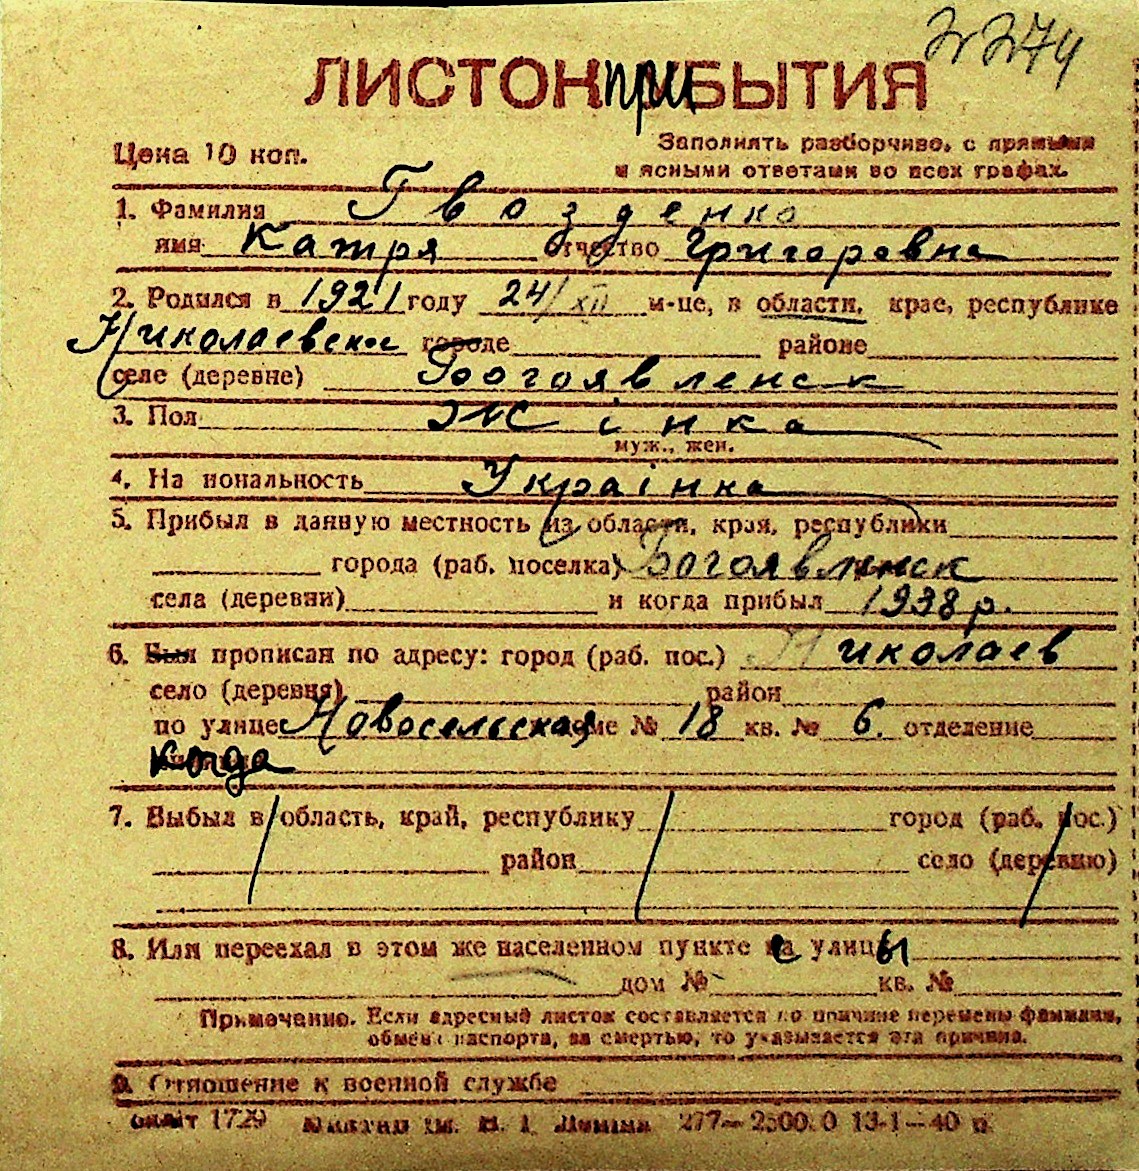 2274
ЛИСТОК ПРИБЫТИЯ
Цена 10 коп.
Заполнять разборчиво, с прямыми
и ясными ответами во всех графах.
1. Фамилия Гвозденко
имя Катря отчество Григоревна
2. Родился в 1921 году 24/XII м-це, в области, крае, республике
Николаевски городе районе
селе (деревне) Богоявленск
3. Пол Жінка
муж., жен.
4. Национальность Украінка
5. Прибыл в данную местность из области, края, республики
города (раб. поселка) Богоявлинск
села (деревни) и когда прибыл 1938 р.
6. Был прописан по адресу: город (раб. пос.) Николаев
село (деревня) район
по улице Новосельская доме № 18 кв. № 6. отделение
когда
7. Выбыл в область, край, республику город (раб. пос.)
район село (деревню)
8. Или переехал в этом же населенном пункте с улицы
дом № кв. №
Примечание. Если адресный листок составляется по причине перемены фамилии,
обмена паспорта, за смертью, то указывается эта причина.
9. Отношение к военной службе
1729 277—2500.0 13-1—40 р.